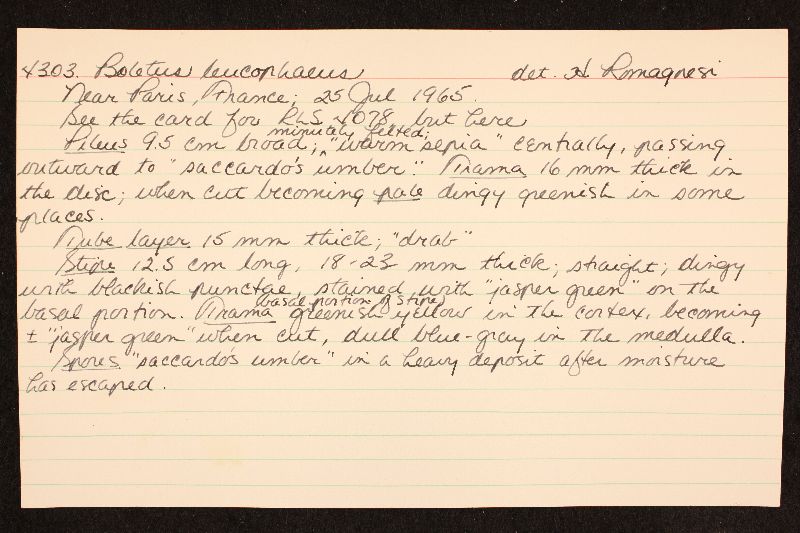 4303. Boletus leucophaeus det. H. Romagnesi
Near Paris, France; 25 Jul 1965.
See the card for RLS 4078, but here
minutely felted;
Pileus 9.5 cm broad; ^ "warm sepia" centrally, passing
outward to "saccardo's umber." Trama 16 mm thick in
the disc; when cut becoming pale dingy greenish in some
places.
Tube layer 15 mm thick; "drab"
Stipe 12.5 cm long, 18-23 mm thick; straight; dingy
with blackish punctae, stained with "jasper green" on the
basal portion of stipe
basal portion. Trama ^ greenish yellow in the cortex, becoming
± "jasper green" when cut, dull blue-gray in the medulla.
Spores "saccardo's umber" in a heavy deposit after moisture
has escaped.